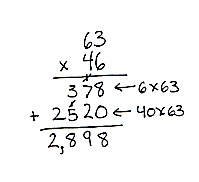 63
× 46
378 ← 6×63
+ 2520 ← 40×63
2,898